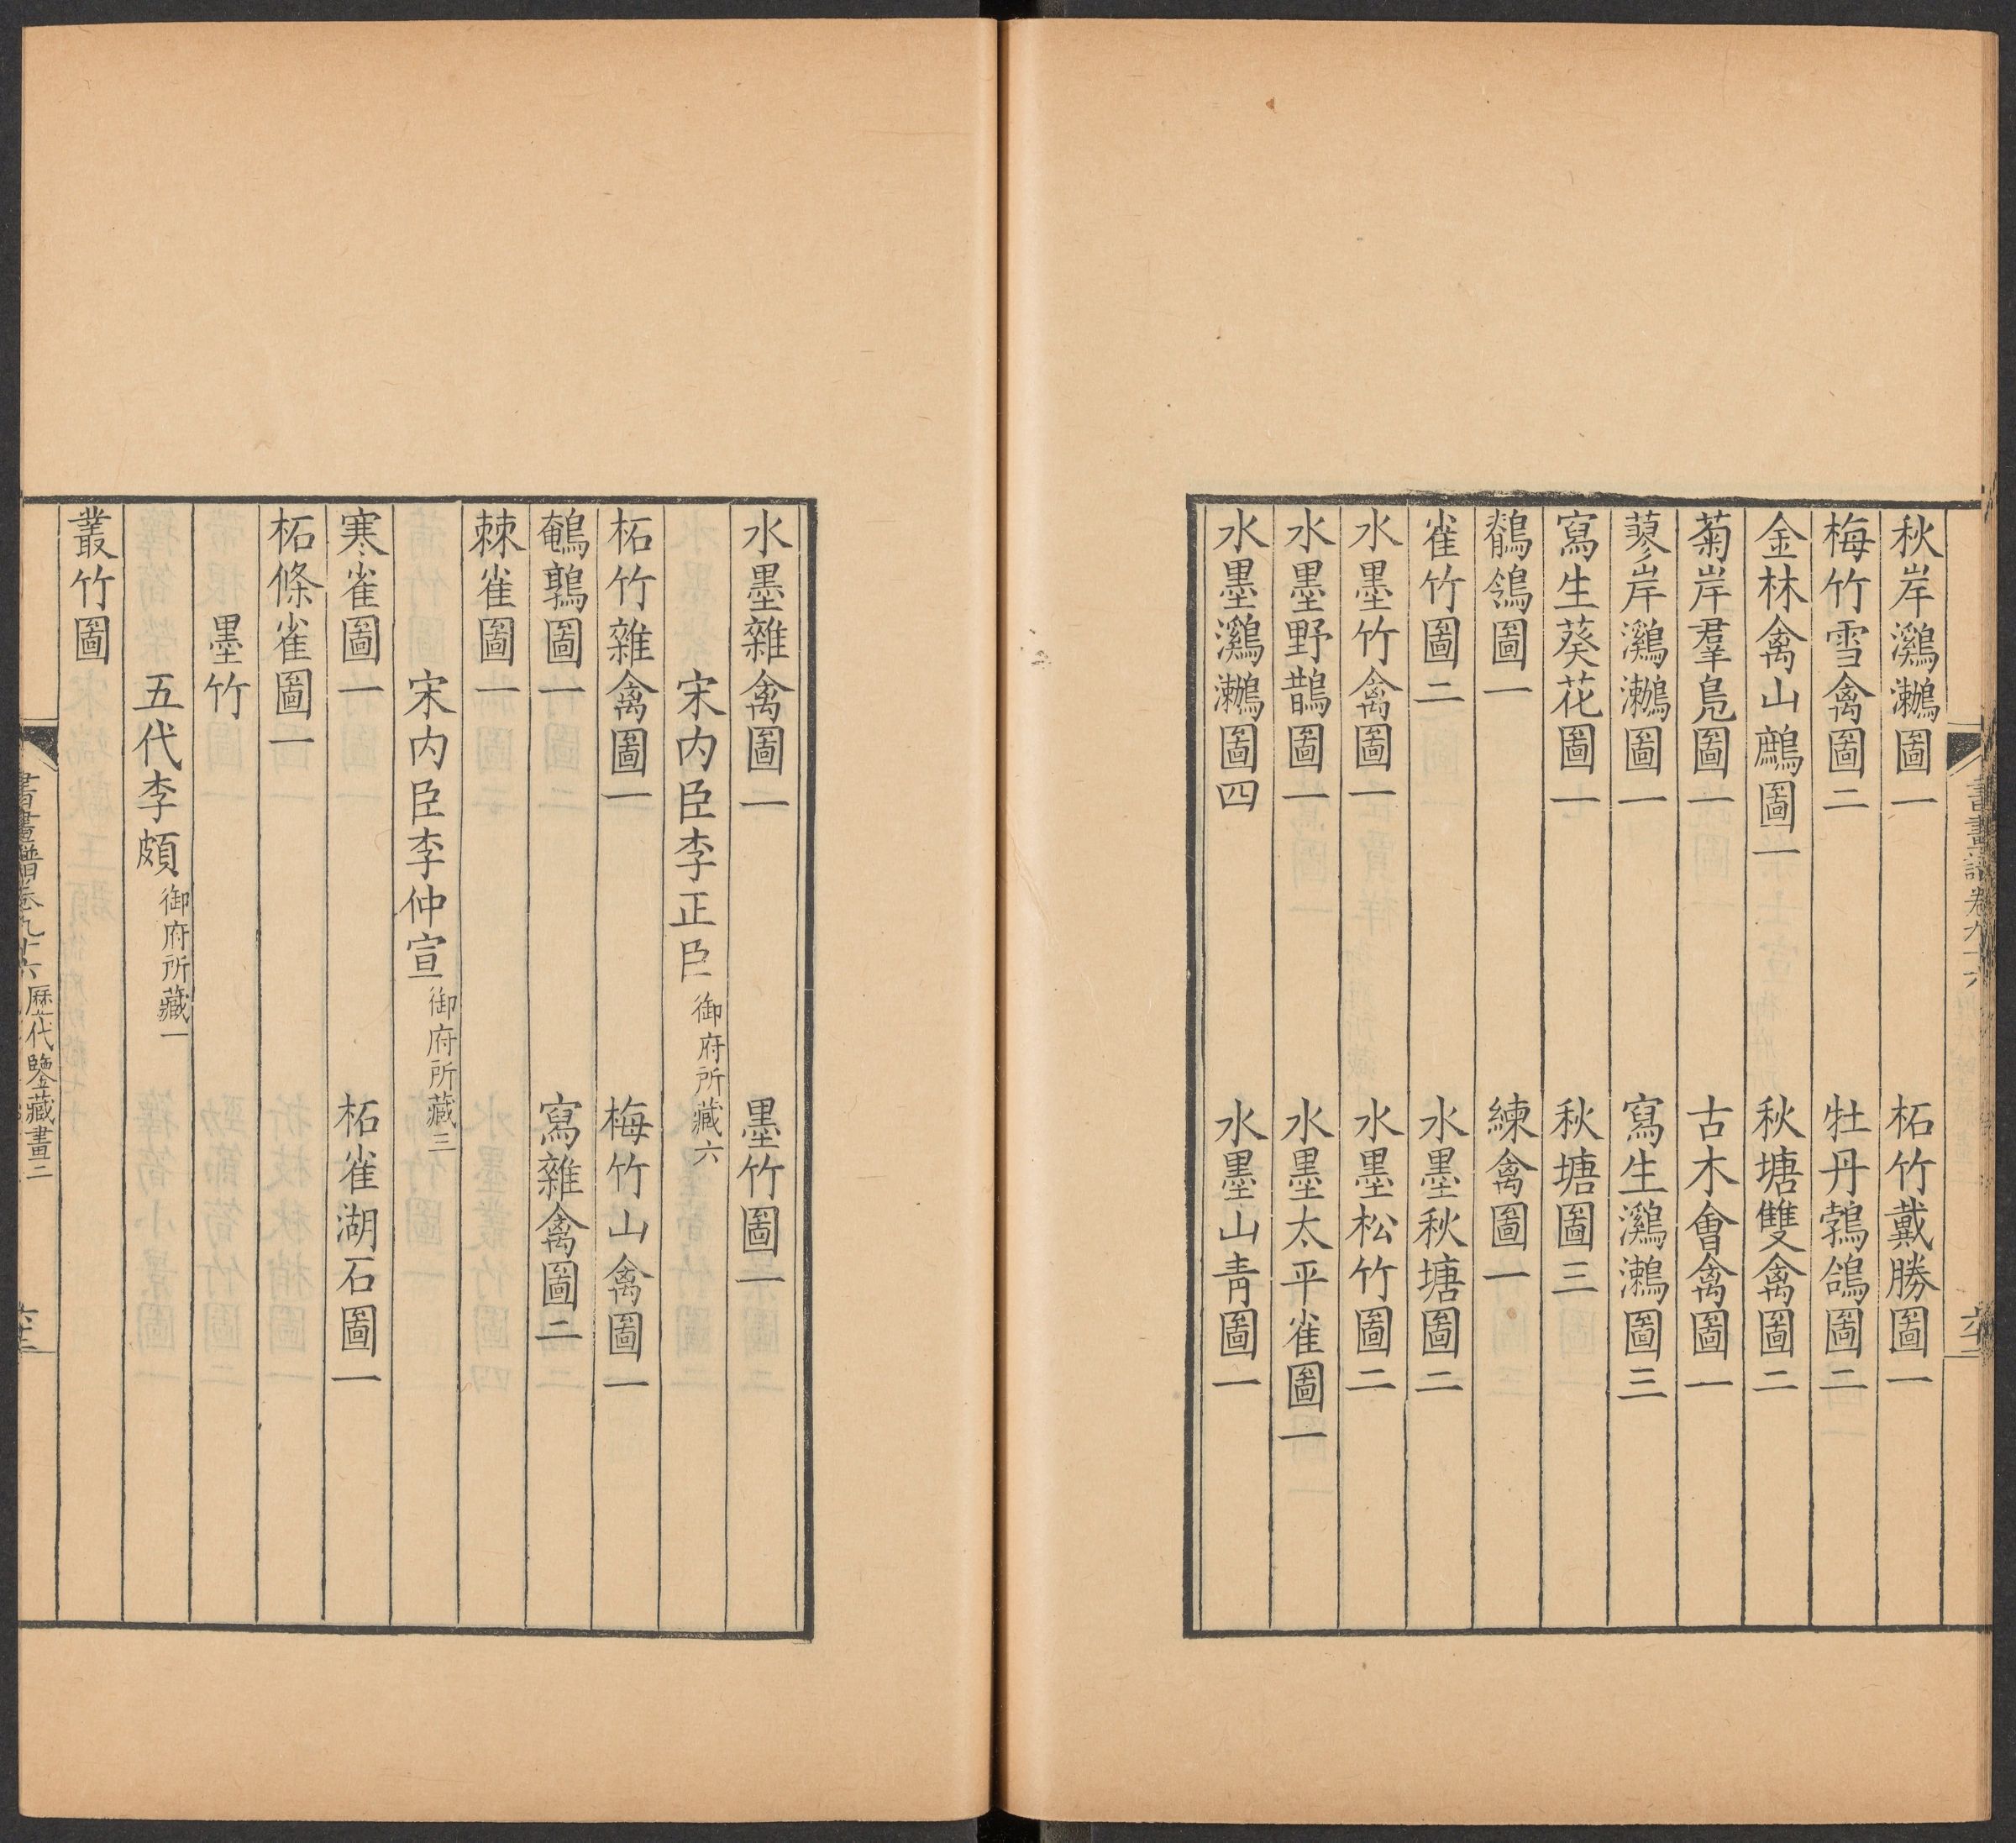 書畫譜卷九十六
秋岸鸂鷘圖一 柘竹戴勝圖一
梅竹雪禽圖二 牡丹鵓鴿圖二
金林禽山鷓圖一 秋塘雙禽圖二
菊岸羣鳧圖一 古木會禽圖一
蓼岸鸂鷘圖一 寫生鸂鷘圖三
寫生葵花圖一 秋塘圖三
鶺鴒圖一 練禽圖一
雀竹圖二 水墨秋塘圖二
水墨竹禽圖一 水墨松竹圖二
水墨野鵲圖一 水墨太平雀圖一
水墨鸂鷘圖四 水墨山青圖一
水墨雜禽圖一 墨竹圖一
宋内臣李正臣 御府所藏六
柘竹雜禽圖一 梅竹山禽圖一
鵪鶉圖一 寫雜禽圖二
棘雀圖一
宋内臣李仲宣 御府所藏三
寒雀圖一 柘雀湖石圖一
柘條雀圖一
墨竹
五代李頗 御府所藏一
叢竹圖
書畫譜卷九十六 歷代鑒藏畫二